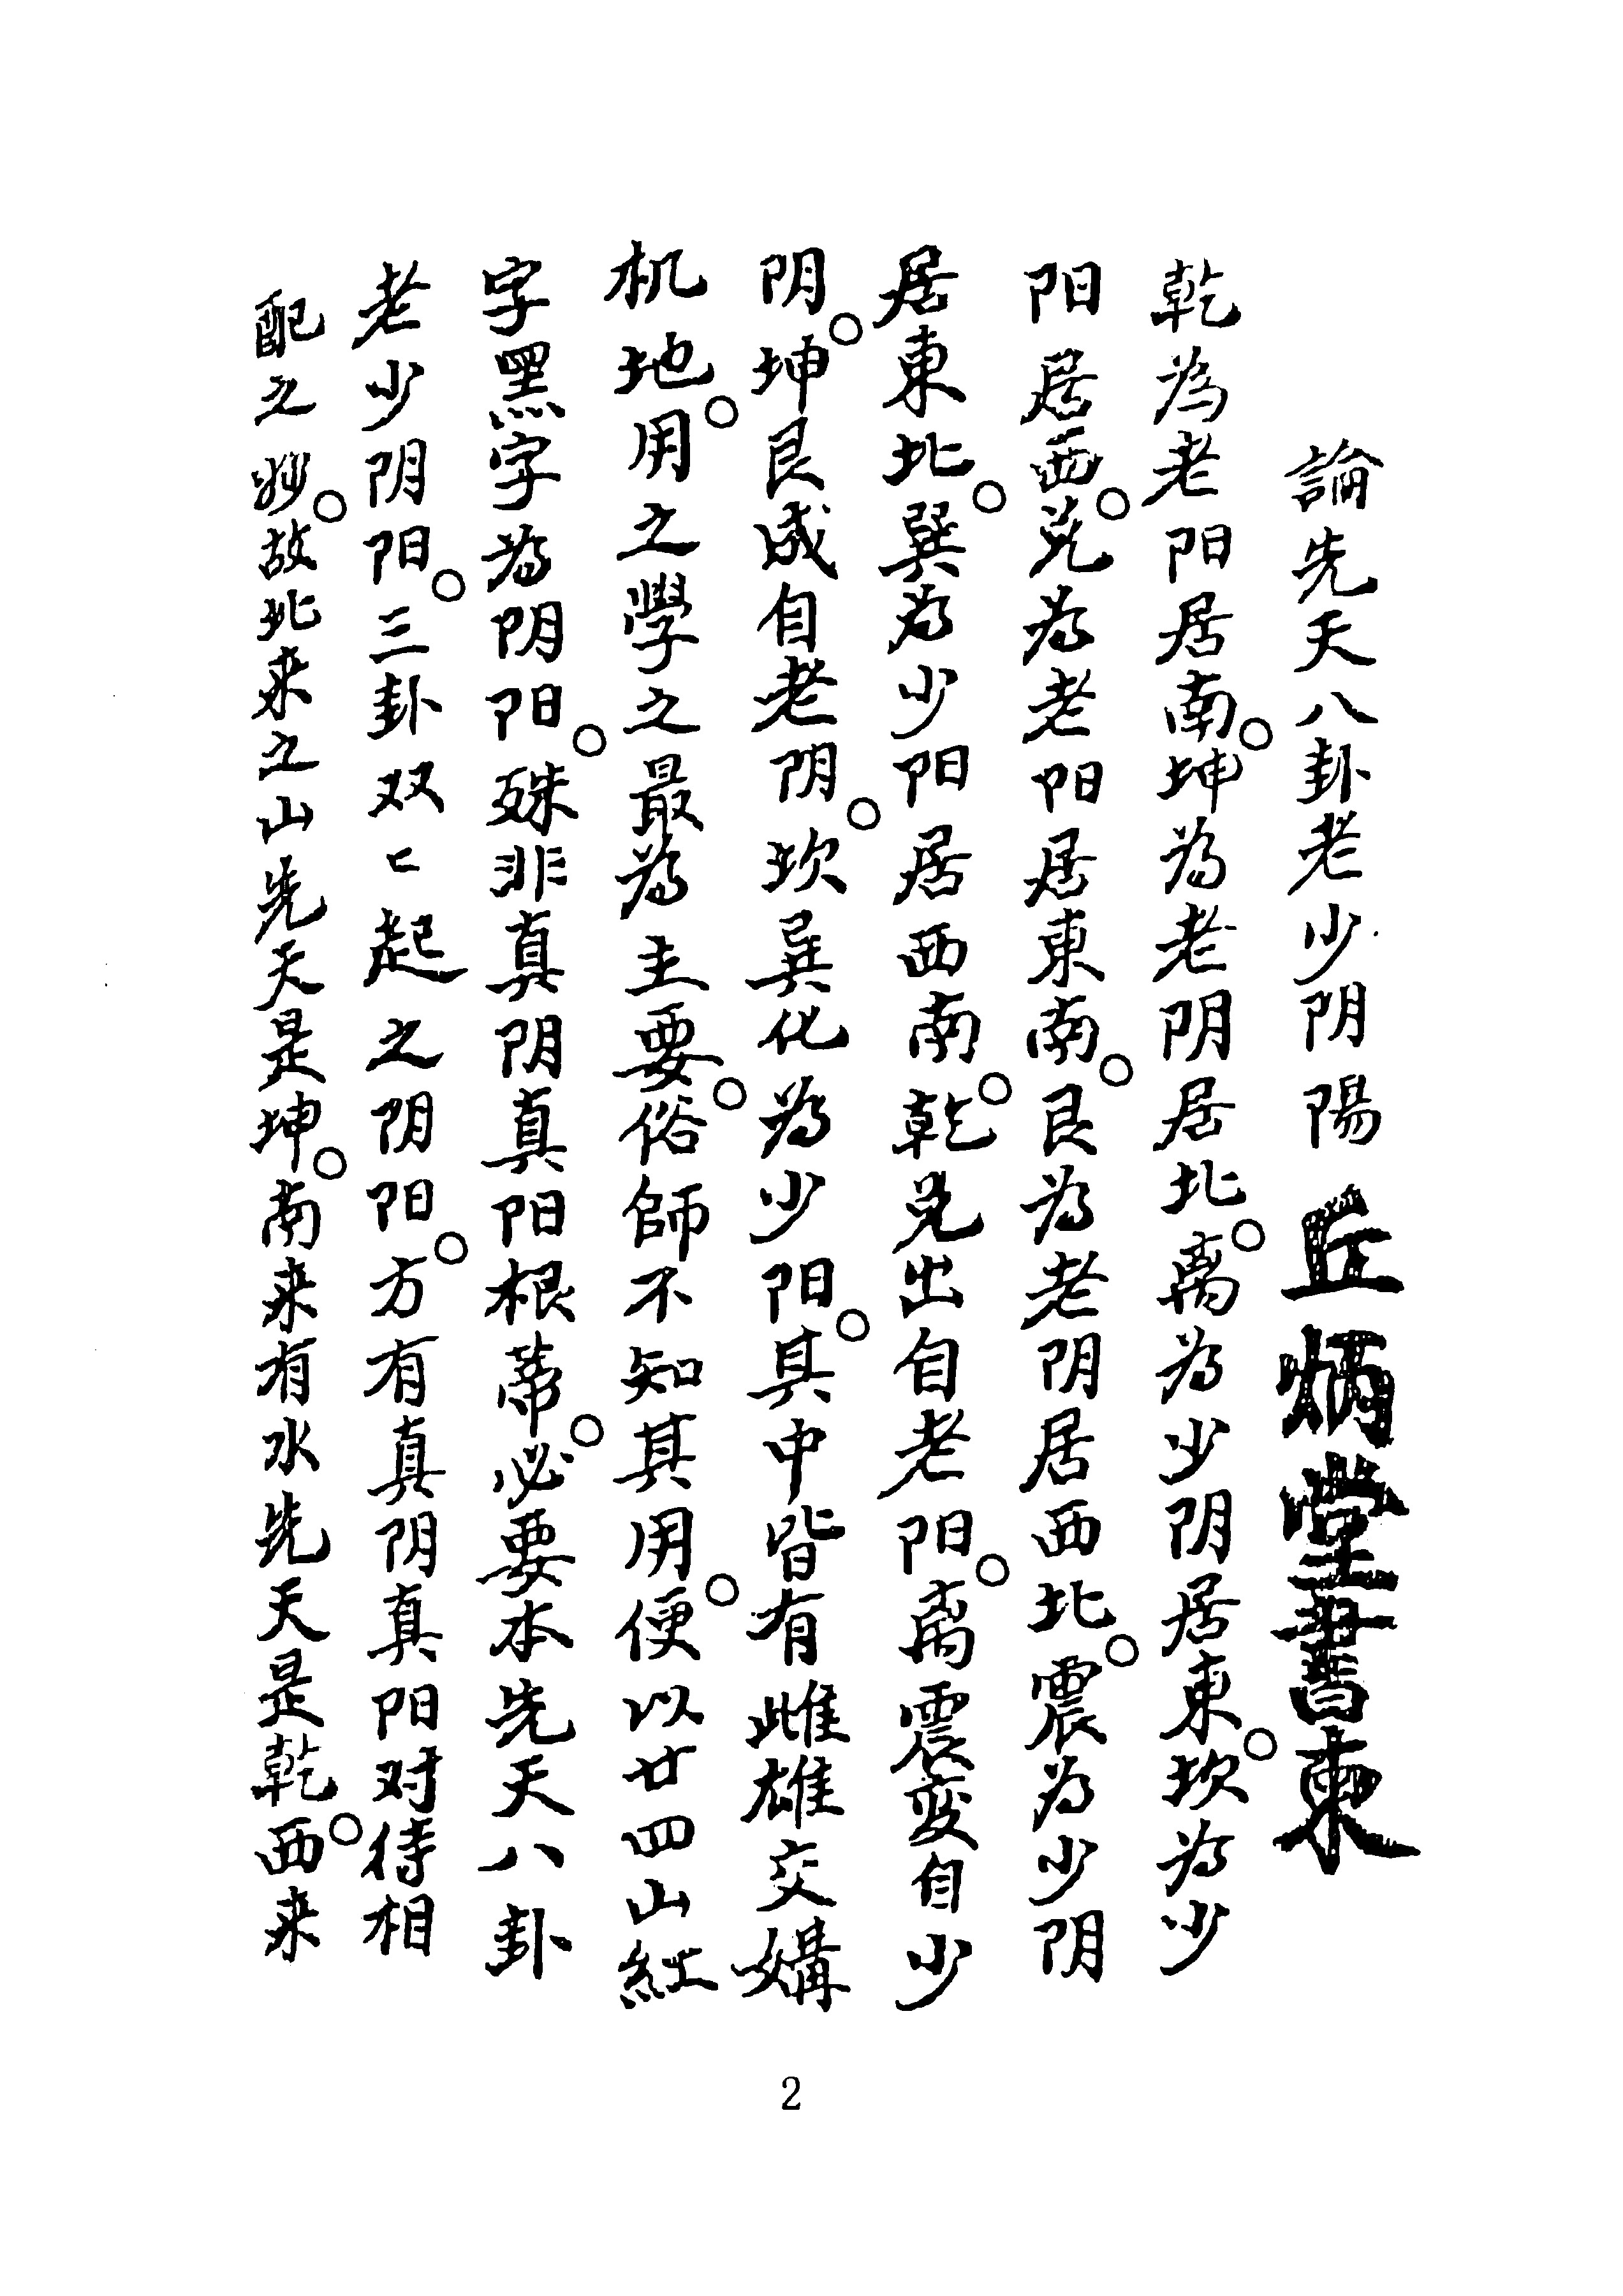 論先天八卦老少阴陽 丘炳堂書柬
乾為老阳居南。坤為老阴居北。离為少阴居東。坎為少
阳居西。兑為老阳居東南。艮為老阴居西北。震為少阴
居東北。巽為少阳居西南。乾兑出自老阳。离震变自少
阴。坤艮成自老阴。坎巽化為少阳。其中皆有雌雄交媾
机地。用之學之最為主要。俗師不知其用。便以廿四山紅
字黑字為阴阳。殊非真阴真阳根蒂。必要本先天八卦
老少阴阳。三卦双々起之阴阳。方有真阴真阳对待相
配之妙。故北来之山先天是坤。南来有水先天是乾。西来
2